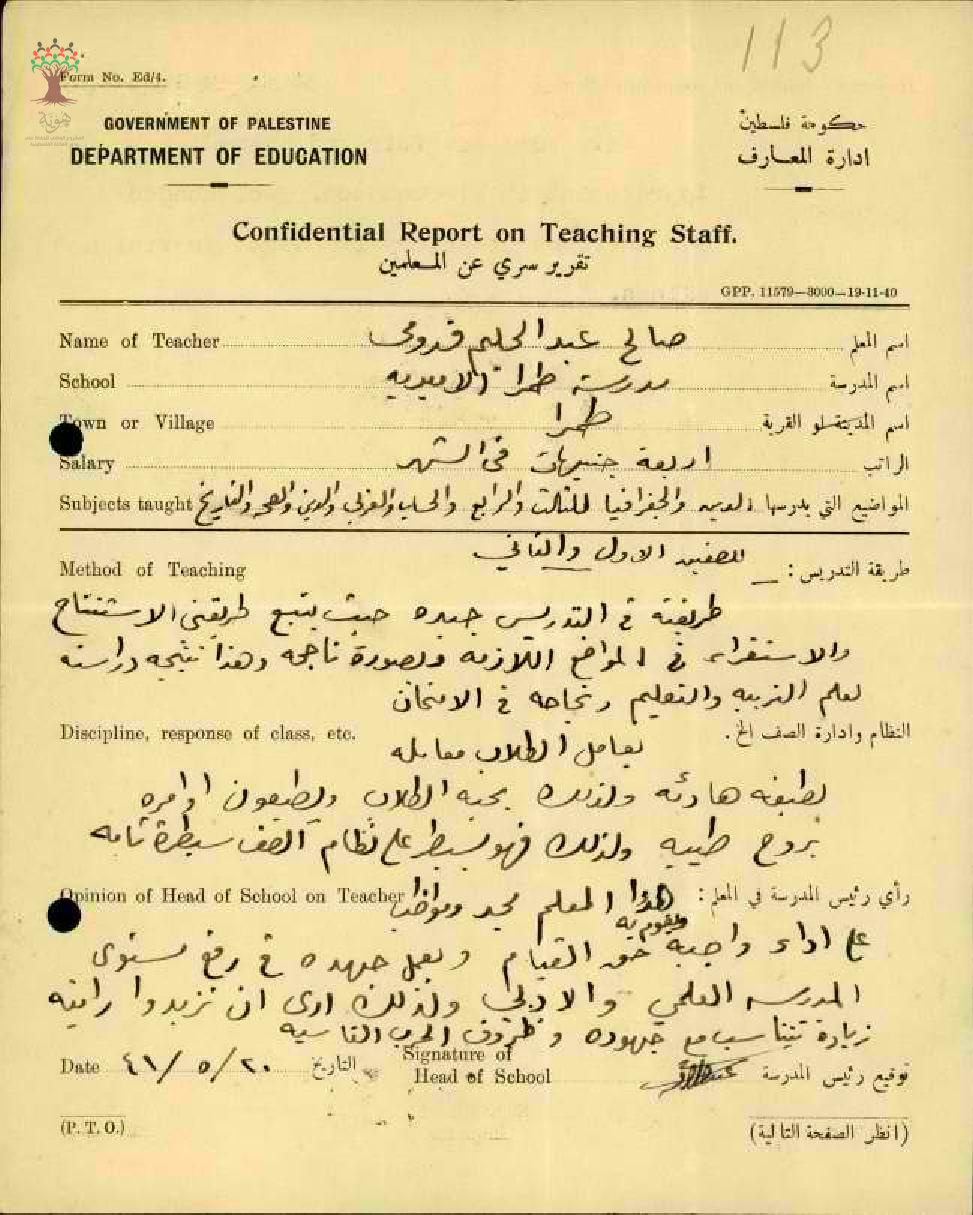 113
Form No. Ed/4.
هوية
GOVERNMENT OF PALESTINE
DEPARTMENT OF EDUCATION
حكومة فلسطين
ادارة المعارف
Confidential Report on Teaching Staff.
تقرير سري عن المعلمين
GPP. 11579—8000—19-11-40
Name of Teacher صالح عبد الحليم قدومي اسم المعلم
School مدرسة طمرا الاميرية اسم المدرسة
Town or Village طمرا اسم المدينة او القرية
Salary اربعة جنيهات في الشهر الراتب
Subjects taught المواضيع التي يدرسها والجغرافيا للثالث والرابع والحساب والعربي والدين والصحه والتاريخ
للصفين الاول والثاني
Method of Teaching طريقة التدريس :
طريقته في التدريس جيده حيث يتبع طريقتي الاستنتاج
والاستقراء في المواضع اللازمه وبصورة ناجحه وهذا نتيجه دراسته
لعلم التربيه والتعليم ونجاحه في الامتحان
Discipline, response of class, etc. النظام وادارة الصف الخ.
يعامل الطلاب معامله
لطيفه هادئه ولذلك يحبه الطلاب ويطيعون اوامره
بروح طيبه ولذلك فهو يسيطر على نظام الصف سيطرة تامه
Opinion of Head of School on Teacher رأي رئيس المدرسة في المعلم : هذا المعلم مجد ومواظب
على اداء واجبه ويقوم به حق القيام ويعمل جهده في رفع مستوى
المدرسه العلمي والادبي ولذلك ارى ان تزيدوا راتبه
زيادة تتناسب مع جهوده وظروف الحرب القاسيه
Date ٢٠/٥/٤١ التاريخ
Signature of
Head of School توقيع رئيس المدرسة
(P. T. O.)
(انظر الصفحة التالية)